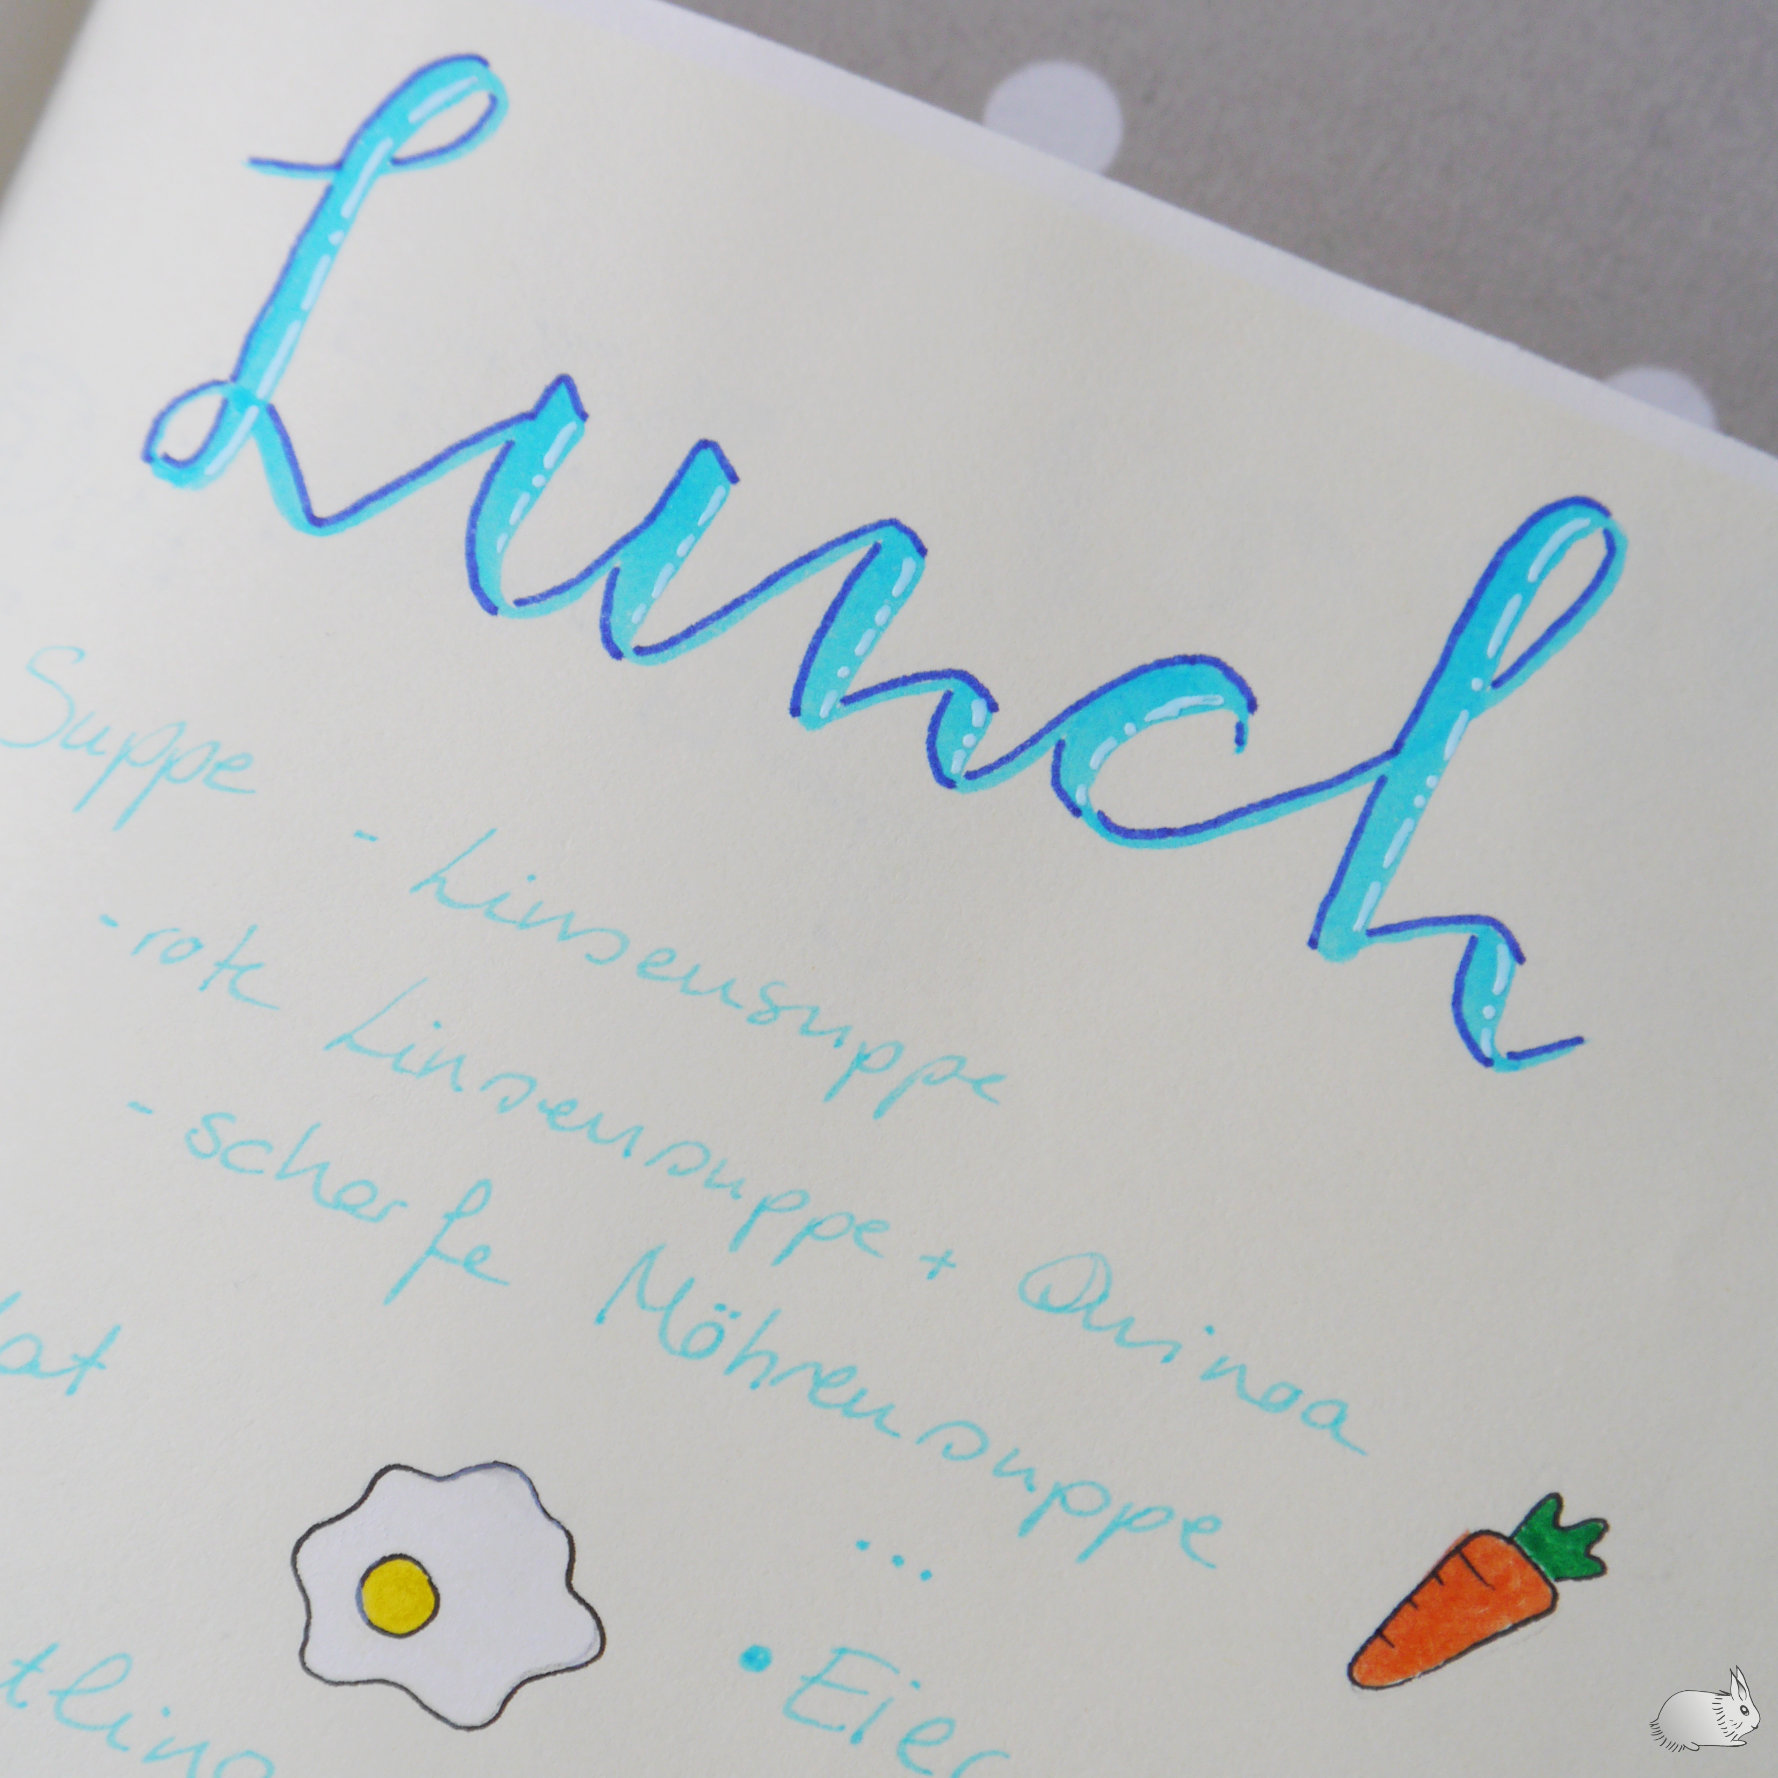 Lunch
Suppe
- Linsensuppe
- rote Linsensuppe + Quinoa
- scharfe Möhrensuppe
...
• Eier